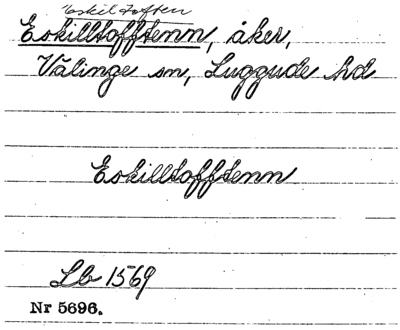 Eskiltoften
Eskilltofftenn, åker,
Välinge sn, Luggude hd
Eskilltofftenn
Lb 1569
Nr 5696.